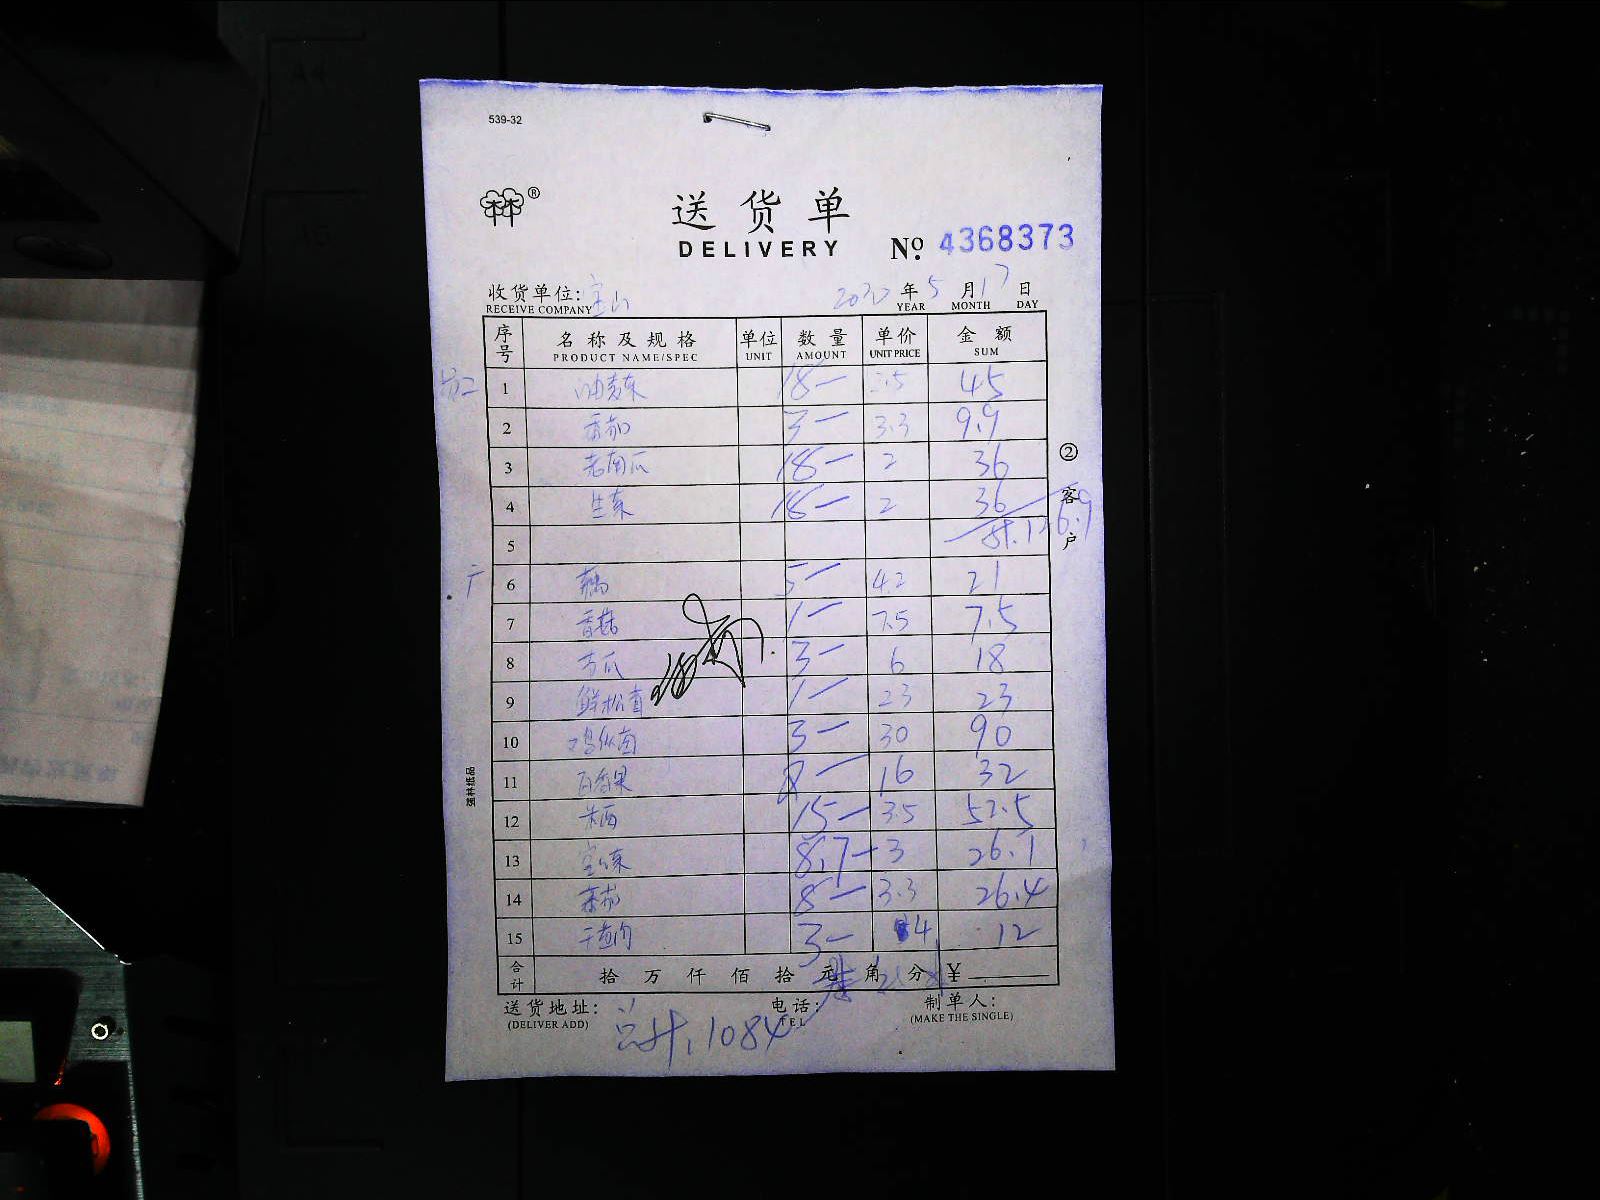 539-32
®
送货单
DELIVERY
№ 4368373
收货单位: 宝山 2020 年 5 月 17 日
RECEIVE COMPANY YEAR MONTH DAY
序号 名称及规格 单位 数量 单价 金额
PRODUCT NAME/SPEC UNIT AMOUNT UNIT PRICE SUM
1 油麦菜 18 2.5 45
2 番茄 3 3.3 9.9
3 老南瓜 18 2 36
4 生菜 18 2 36
5 计.126.9
6 藕 5 4.2 21
7 香菇 1 7.5 7.5
8 方瓜 3 6 18
9 鲜松茸 1 23 23
10 鸡纵菌 3 30 90
11 百香果 2 16 32
12 米面 15 3.5 52.5
13 8.7 3 26.1
14 8 3.3 26.4
15 3 4 12
合计 拾 万 仟 佰 拾 元 角 分 ¥
送货地址: 电话: 制单人:
(DELIVER ADD) TEL (MAKE THE SINGLE)
总计.1084
②客户
强林纸品